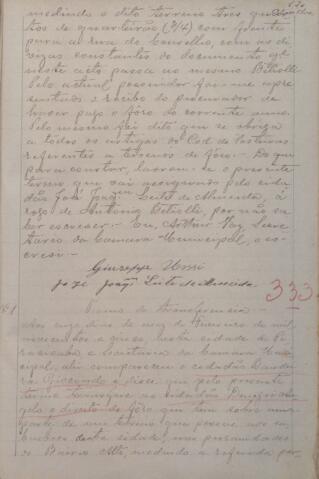 medindo o dito terreno tres quar
tos de quarteirão (3/4) com frente
para a rua do Conselho, com as di
vizas constantes do documento q
neste acto passa ao mesmo Petrilli
pelo actual possuidor foi me apre
sentado o recibo do procurador de
haver pago o fôro do corrente anno.
Pelo mesmo foi dito que se obriga
a todos os artigos do Cod. de Posturas
referentes a terrenos de fôro. Do que
para constar, lavrou-se o presente
termo que vai assignado pelo cida
dão José Joaqm Leite de Almeida, á
rogo de Antonio Petrilli, por não sa
ber escrever. Eu, Arthur Vaz, Secre
tario da Camara Municipal, o es
crevi
Giuseppe
José Joaqm Leite de Almeida
333
Nº 1
Termo de transferencia
Aos onze dias do mez de Janeiro de mil
novecentos e cinco, nesta cidade de Pi
racicaba e Secretaria da Camara Mu
nicipal, ahi compareceu o cidadão
e disse que pelo presente
termo transfere ao cidadão
o direito de fôro que tem sobre uma
parte de um terreno que possue nos su
burbios desta cidade, nas proximidades
do Bairro Alto, medindo a referida par